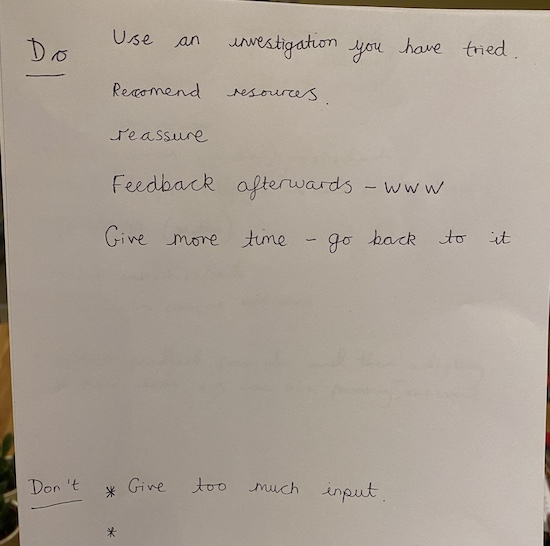 Do Use an investigation you have tried.
Recomend resources.
reassure
Feedback afterwards - WWW
Give more time - go back to it
Don't * Give too much input.
*